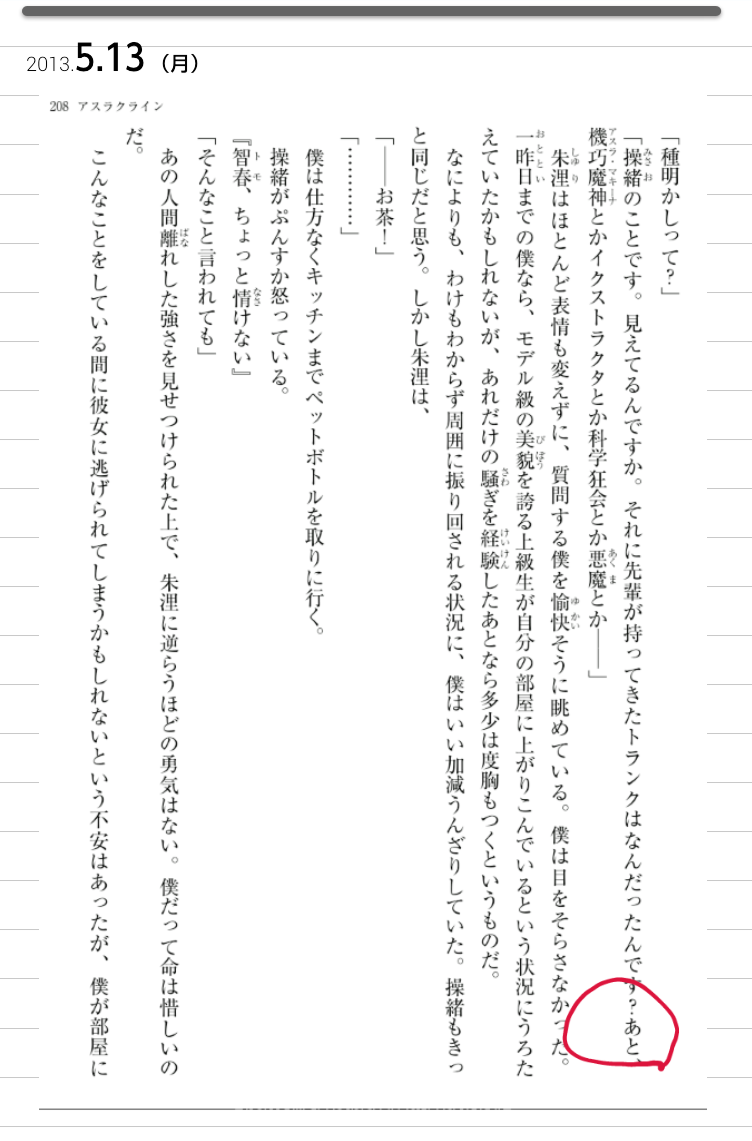 2013.5.13（月）
208 アスラクライン
「種明かしって？」
「操緒のことです。見えてるんですか。それに先輩が持ってきたトランクはなんだったんです？あと、
機巧魔神とかイクストラクタとか科学狂会とか悪魔とか――」
　朱浬はほとんど表情も変えずに、質問する僕を愉快そうに眺めている。僕は目をそらさなかった。
一昨日までの僕なら、モデル級の美貌を誇る上級生が自分の部屋に上がりこんでいるという状況にうろた
えていたかもしれないが、あれだけの騒ぎを経験したあとなら多少は度胸もつくというものだ。
　なによりも、わけもわからず周囲に振り回される状況に、僕はいい加減うんざりしていた。操緒もきっ
と同じだと思う。しかし朱浬は、
「――お茶！」
「…………」
　僕は仕方なくキッチンまでペットボトルを取りに行く。
　操緒がぷんすか怒っている。
『智春、ちょっと情けない』
「そんなこと言われても」
　あの人間離れした強さを見せつけられた上で、朱浬に逆らうほどの勇気はない。僕だって命は惜しいの
だ。
　こんなことをしている間に彼女に逃げられてしまうかもしれないという不安はあったが、僕が部屋に